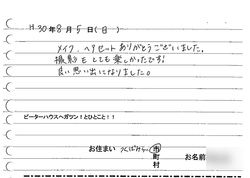 H 30年 8月 5日(日)
メイク、ヘアセットありがとうございました。
撮影もとても楽しかったです!
良い思い出になりました。
ピーターハウスへガツン!とひとこと!!
お住まい つくばみらい 市
町
村
お名前